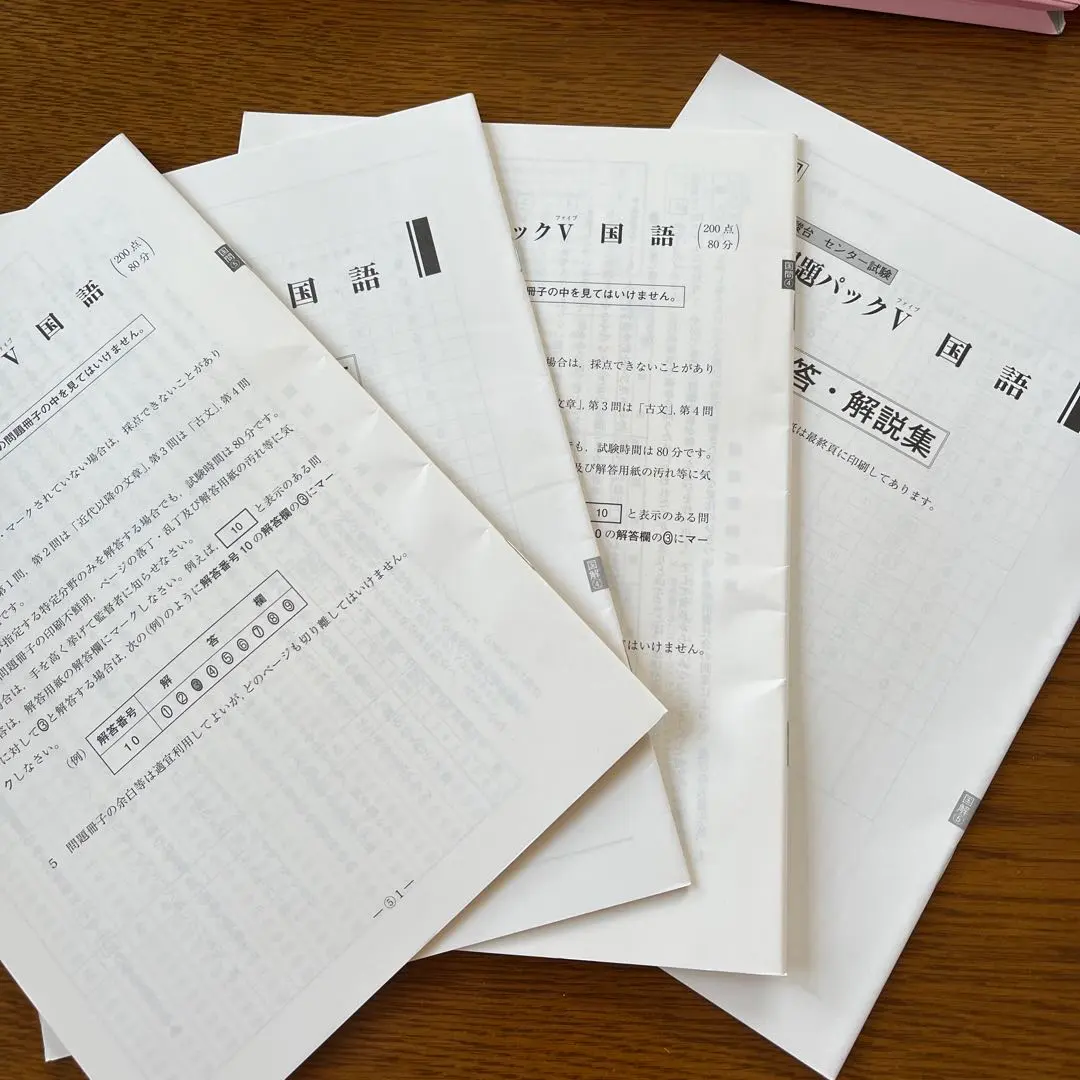 200点
80分
国問⑤
ファイブ
V 国 語
の問題冊子の中を見てはいけません。
マークされていない場合は，採点できないことがあり
第1問，第2問は「近代以降の文章」，第3問は「古文」，第4問
です。
が指定する特定分野のみを解答する場合でも，試験時間は80分です。
問題冊子の印刷不鮮明，ページの落丁・乱丁及び解答用紙の汚れ等に気
場合は，手を高く挙げて監督者に知らせなさい。
答は，解答用紙の解答欄にマークしなさい。例えば， 10 と表示のある問
に対して③と解答する場合は，次の(例)のように解答番号10の解答欄の③にマー
クしなさい。
(例)
解答番号 解 答 欄
10 ① ② ③ ④ ⑤ ⑥ ⑦ ⑧ ⑨
5 問題冊子の余白等は適宜利用してよいが，どのページも切り離してはいけません。
—⑤1—
国 語
国解④
ファイブ
ックV 国 語
200点
80分
国問④
冊子の中を見てはいけません。
場合は，採点できないことがあり
文章」，第3問は「古文」，第4問
も，試験時間は80分です。
及び解答用紙の汚れ等に気
10 と表示のある問
0の解答欄の③にマー
はいけません。
駿台 センター試験
ファイブ
題パックV 国 語
答・解説集
紙は最終頁に印刷してあります。
国解⑤